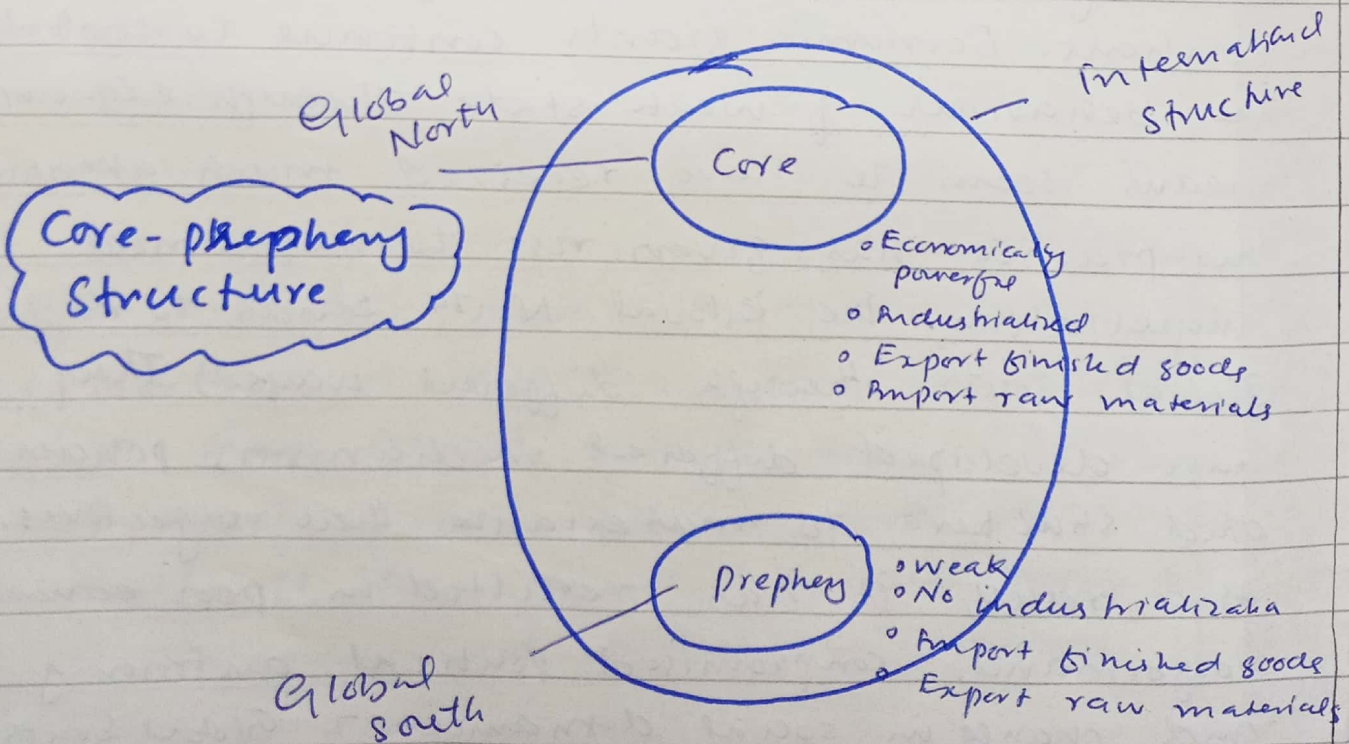 Global
North
international
structure
Core
Core-prephery
Structure
• Economically
powerful
• Industrialized
• Export finished goods
• Import raw materials
prephery
• weak
• No industrializatia
• Import finished goods
• Export raw materials
Global
south